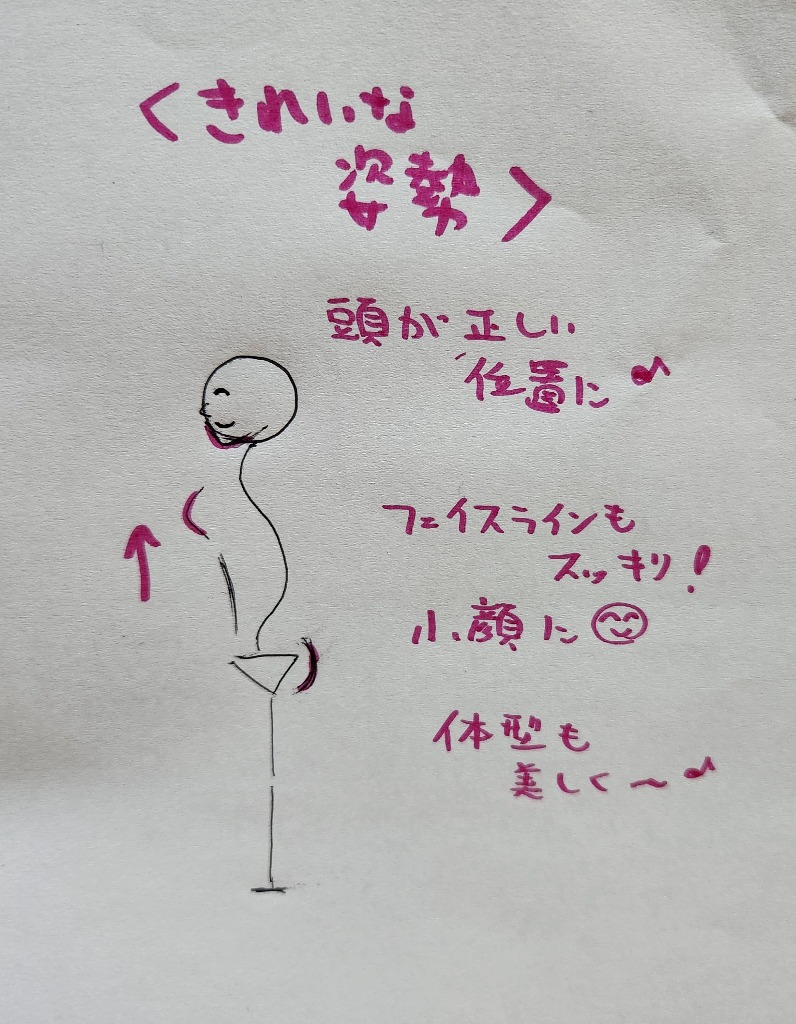 〈きれいな
姿勢〉
頭が正しい
位置に♪
フェイスラインも
スッキリ!
小顔に😊
体型も
美しく〜♪